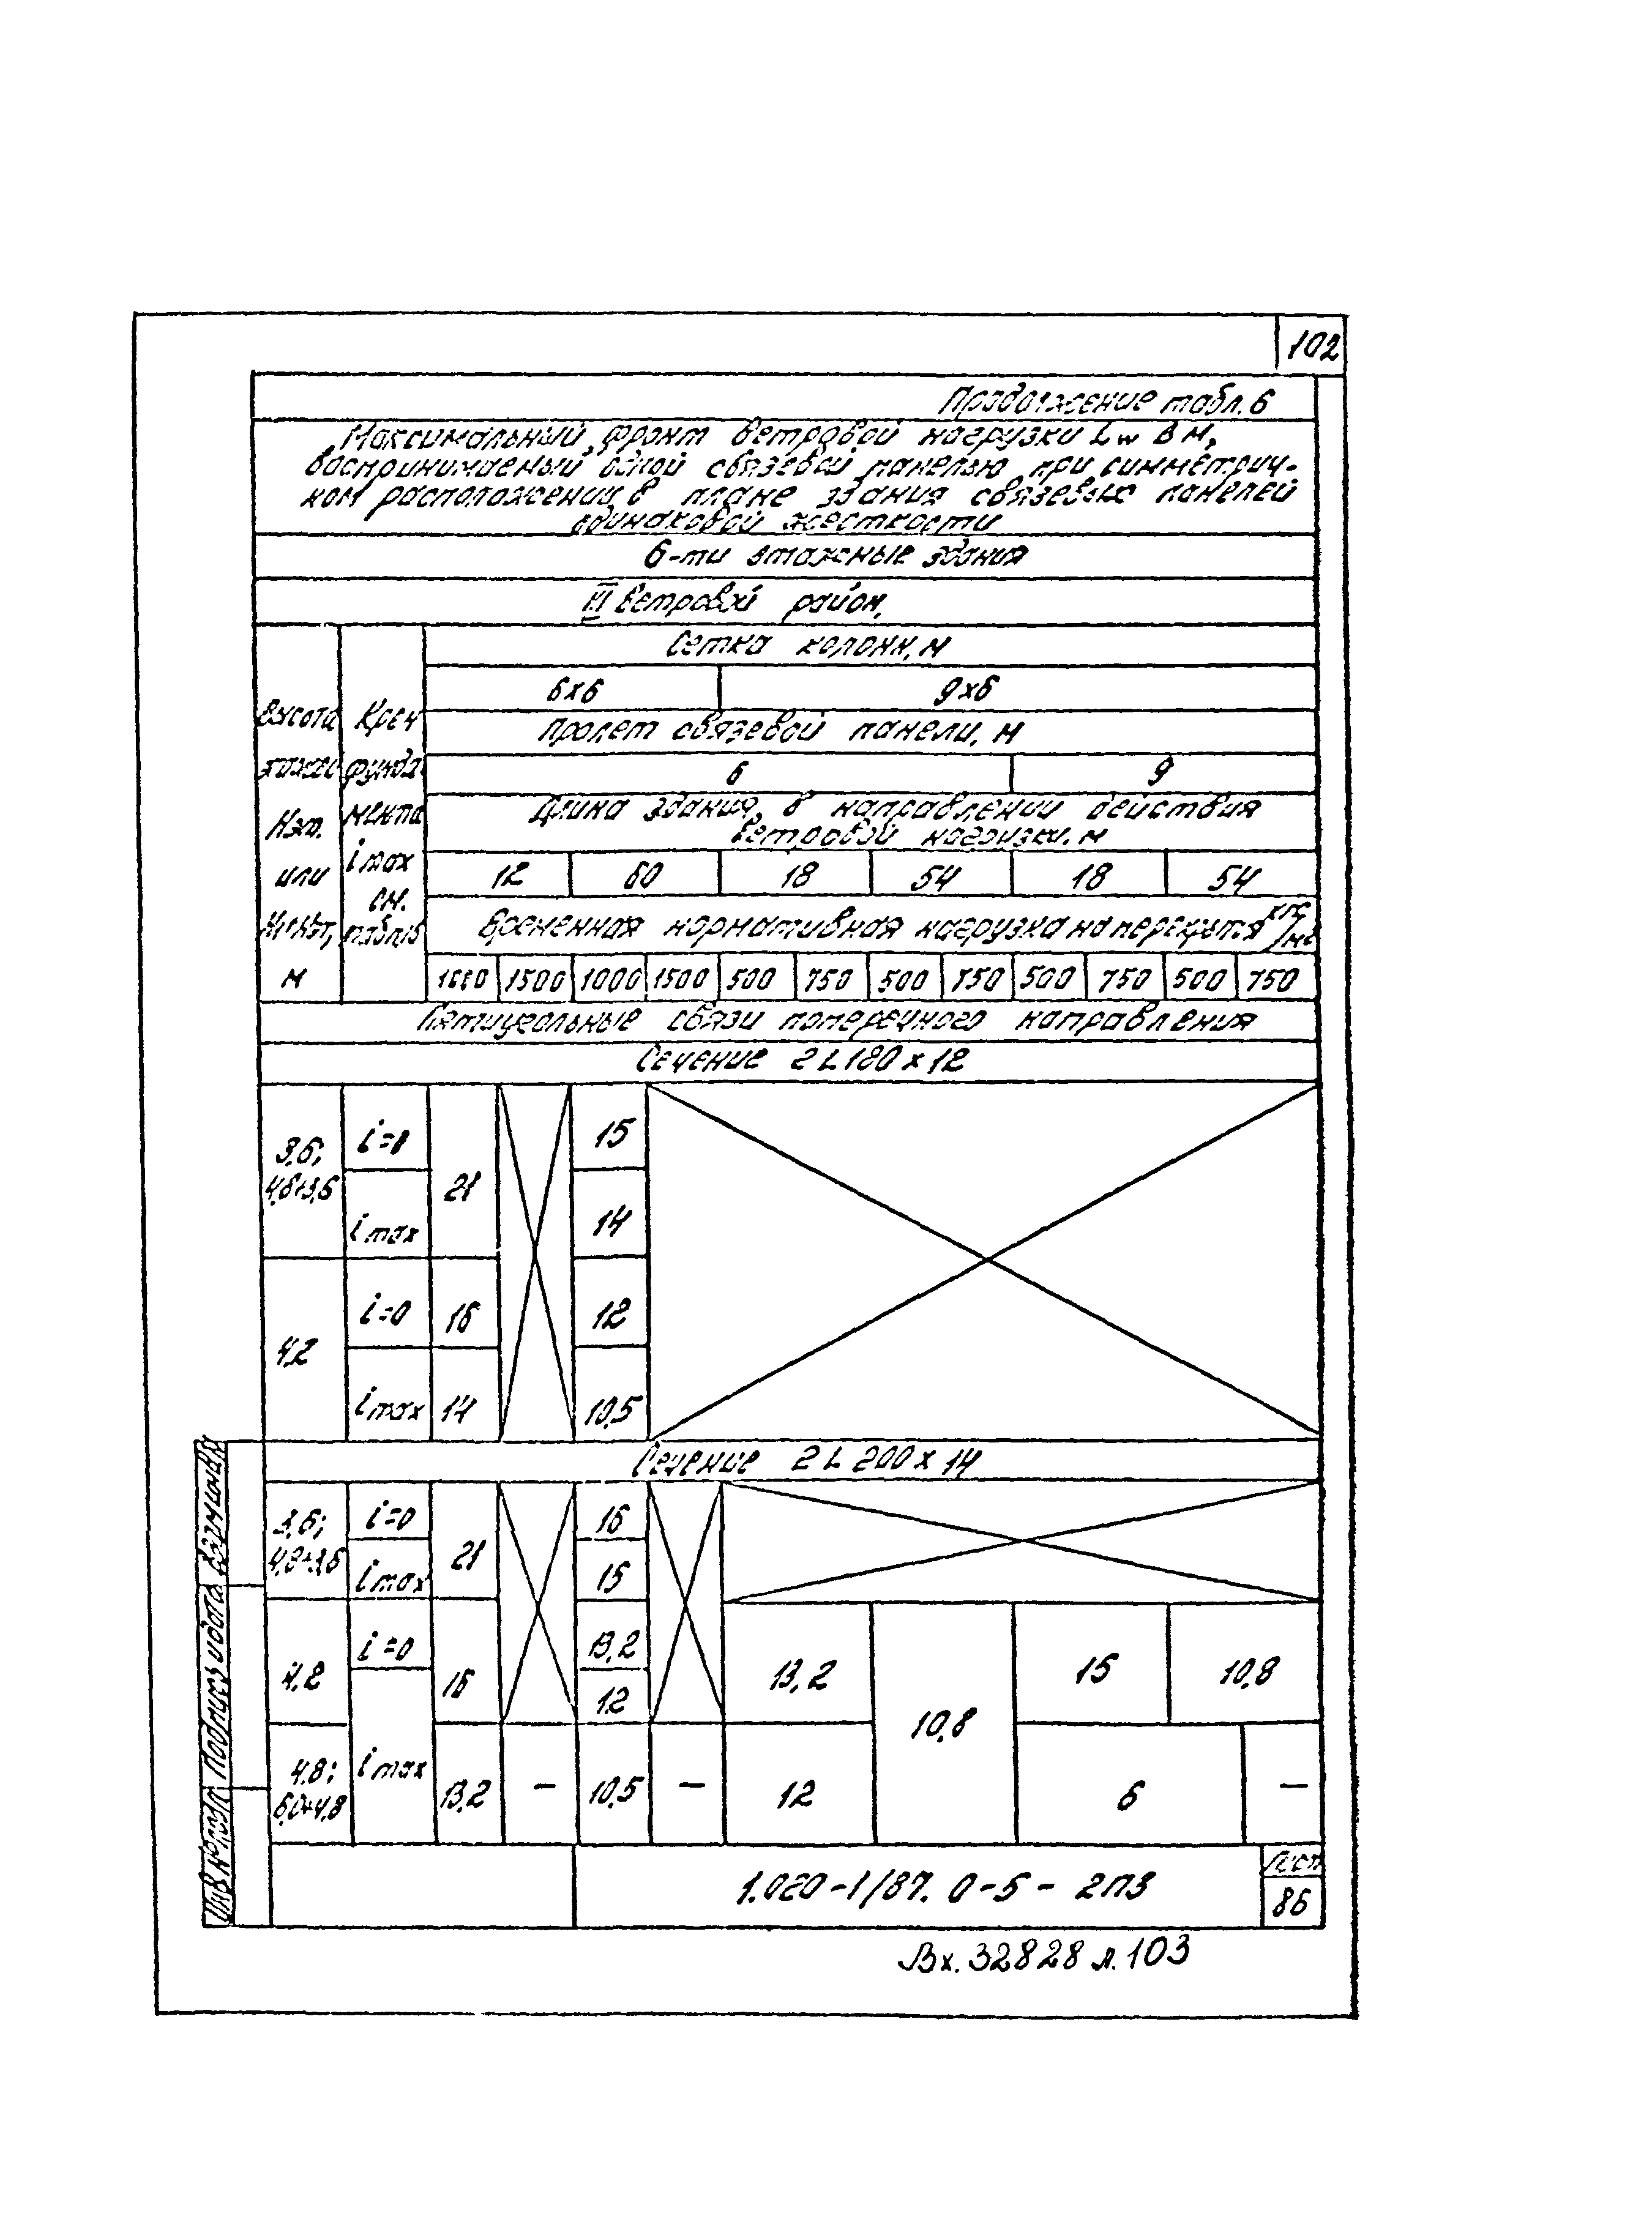 102
Продолжение табл. 6
Максимальный фронт ветровой нагрузки Lw в м,
воспринимаемый одной связевой панелью при симметрич-
ном расположении в плане здания связевых панелей
одинаковой жесткости
6-ти этажные здания
III ветровой район,
Сетка колонн, м
6х6 9х6
Высота Крен
Пролет связевой панели, м
этажей фунда-
6 9
Нэт. мента
Длина здания, в направлении действия
ветровой нагрузки, м
или i max
12 60 18 54 18 54
см.
Временная нормативная нагрузка на перекрытия кгс/м²
м
1000 1500 1000 1500 500 750 500 750 500 750 500 750
Пятиугольные связи поперечного направления
Сечение 2 L 180 х 12
3,6; i=0 15
4,8+3,6 21
i max 14
i=0 16 12
4,2
i max 14 10,5
Сечение 2 L 200 х 14
3,6; i=0 16
4,8+3,6 21
i max 15
i=0 13,2
4,2 16 13,2 15 10,8
12
10,8
4,8; i max
6,0+4,8 13,2 – 10,5 – 12 6 –
1.020-1/87. 0-5 - 2ПЗ
Лист
86
Вх. 32828 л. 103
Инв № подл Подпись и дата Взам инв №